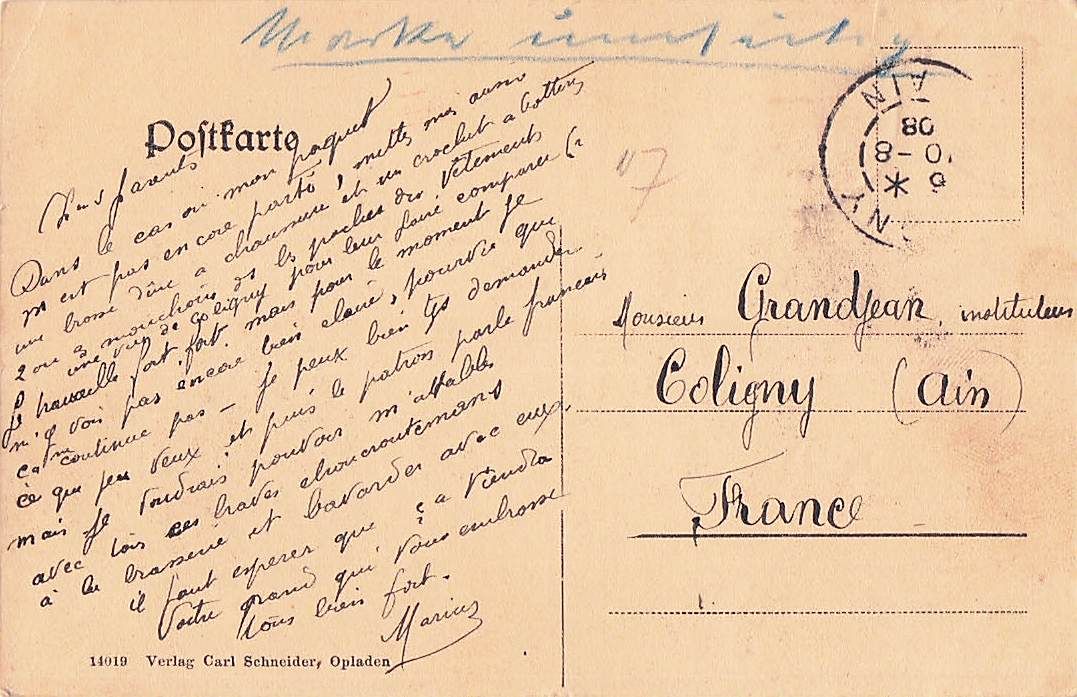 Marke
Postkarte
parents
Dans le cas où mon paquet
n'est pas encore parti, mettez moi aussi
une brosse dure a chaussure et un crochet a bottines
2 ou 3 mouchoirs ds les poches des vêtements
une vue de Coligny pour leur faire comparer
Je travaille fort, fort. mais pour le moment je
n'y vois pas encore bien clair, pourvu que
ça ne continue pas – Je peux bien demander
ce que je veux et puis le patron parle français
mais je voudrais pouvoir m'attabler
avec tous ces braves choucroutemans
à la brasserie et bavarder avec eux.
il faut espérer que ça viendra
Votre grand qui vous embrasse
tous bien fort.
Marius
14019 Verlag Carl Schneider, Opladen
AIN
08
10-8
*
NY
Monsieur Grandjean, instituteur
Coligny (Ain)
France